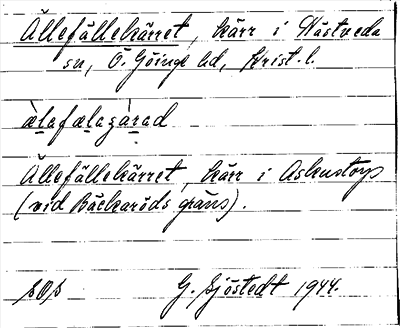 Ällefällekärret, kärr i Hästveda
sn, Ö. Göinge hd, Krist. l.
àlafælagárad
Ällefällekärret, kärr i Askentorp
(vid Bäckaröds gräns).
G. Sjöstedt 1944.